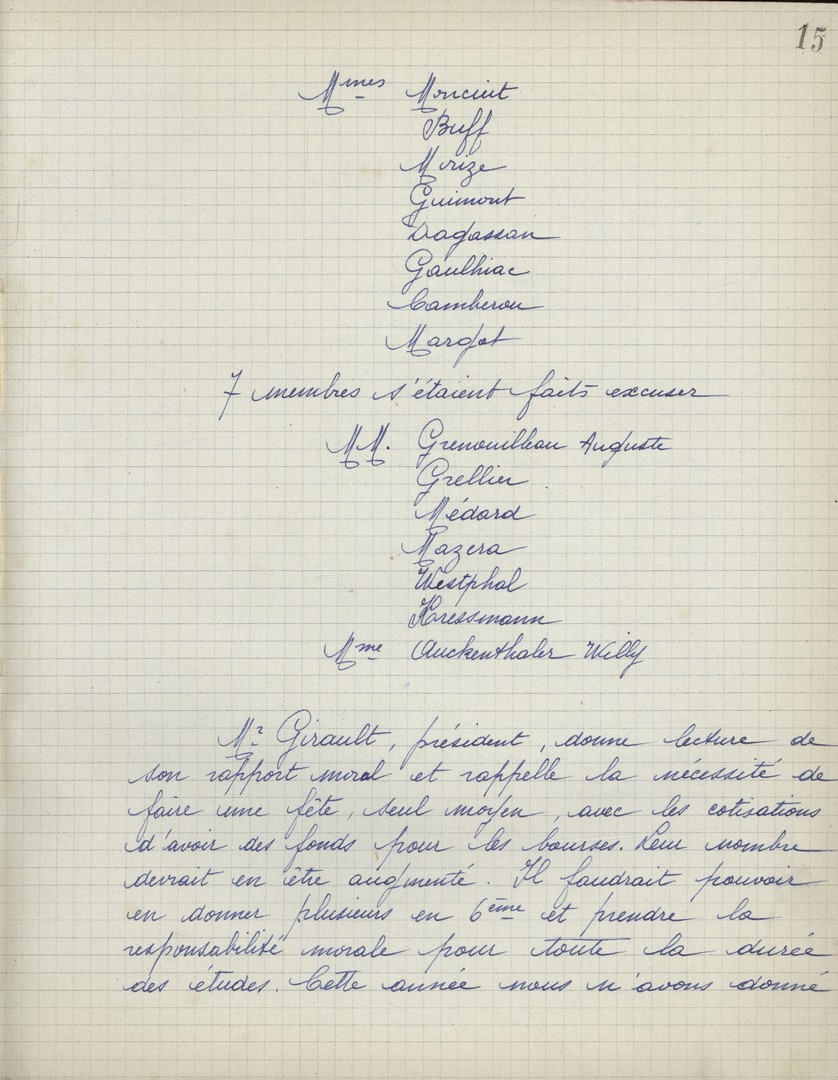 15
Mmes Moncint
Buff
Morize
Guimont
Dagassan
Gaulhiac
Camberou
Margot
7 membres s'étaient faits excuser
MM. Grenouilleau Auguste
Grellier
Médard
Mazera
Westphal
Kressmann
Mme Auckenthaler Willy
Mr Girault, président, donne lecture de
son rapport moral et rappelle la nécessité de
faire une fête, seul moyen, avec les cotisations
d'avoir des fonds pour les bourses. Leur nombre
devrait en être augmenté. Il faudrait pouvoir
en donner plusieurs en 6ème et prendre la
responsabilité morale pour toute la durée
des études. Cette année nous n'avons donné